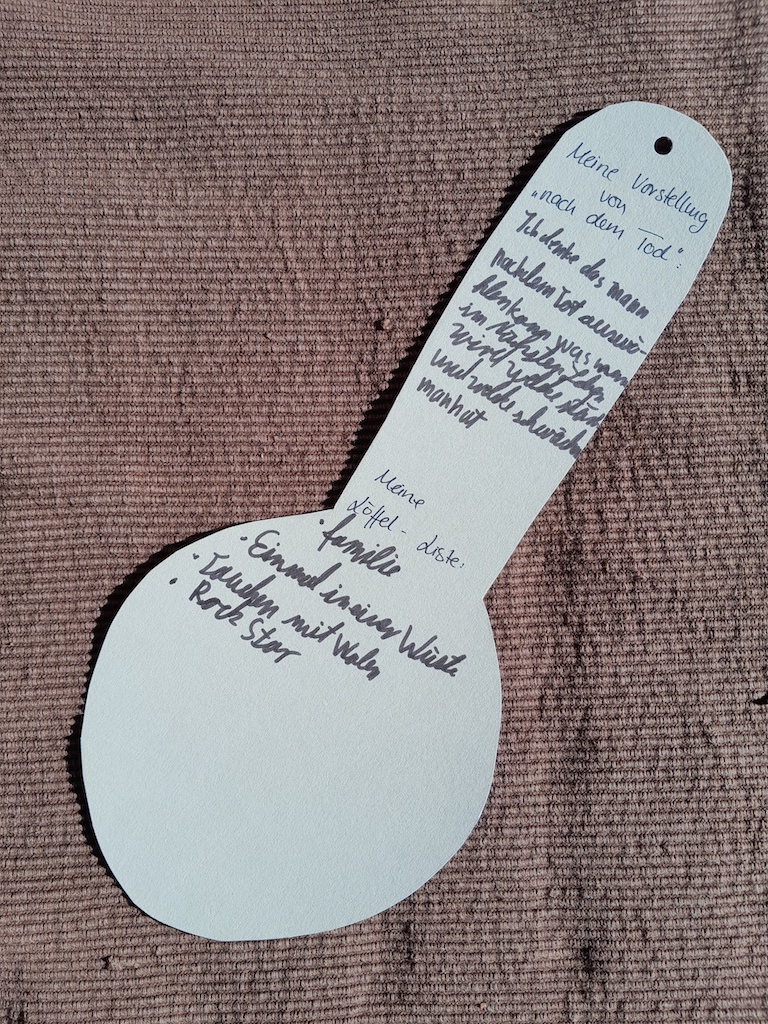 Meine Vorstellung
von
„nach dem Tod“:
Ich denke das mann
nachdem Tot auswä-
hlen kann was man
im nächsten Leben
wird welche stärken
und welche schwächen
man hat
Meine
Löffel-Liste:
• familie
• Einmal in einer Wüste
• Tauchen mit Walen
• Rock Star